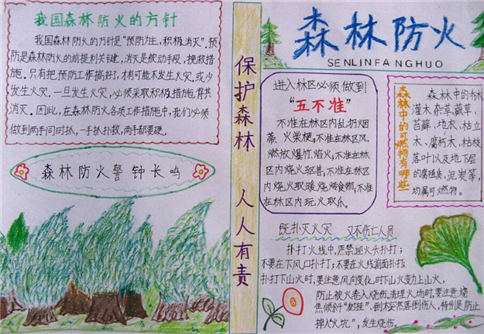 我国森林防火的方针
我国森林防火的方针是"预防为主,积极消灭"。预
防是森林防火的前提和关键,消灭是被动手段、挽救措
施。只有把预防工作搞好,才有可能不发生火灾或少
发生火灾。一旦发生火灾,必须采取积极措施,将其
消灭。因此,在森林防火各项工作措施中,我们必须
做到两手同时抓,一手抓扑救,两手都要硬。
森林防火警钟长鸣
保护森林 人人有责
森林防火
SENLINFANGHUO
进入林区必须做到
"五不准"
不准在林区内乱扔烟
蒂、火柴梗;不准在林区
燃放爆竹、焰火;不准在林区
不准
在林区内玩火取乐。
森林中的可燃物有哪些
森林中的乔木、
灌木、杂草、蕨草、
苔藓、地衣、枯立
木、腐朽木、枯枝
落叶以及地下层
的腐殖质、泥炭等,
均属可燃物。
既扑灭火灾 又不伤亡人员
扑打火线中,严禁迎火头扑打;
不要在下风口扑打;不要在火线前面扑打;
扑打下山火时,要注意风向变化,时下山火变为上山火,
防止被火卷入烧伤。清理火场时,要注意烧
焦倾斜"树挂"、倒木突然落倒伤人,特别是防止
掉入"火坑",发生烧伤。